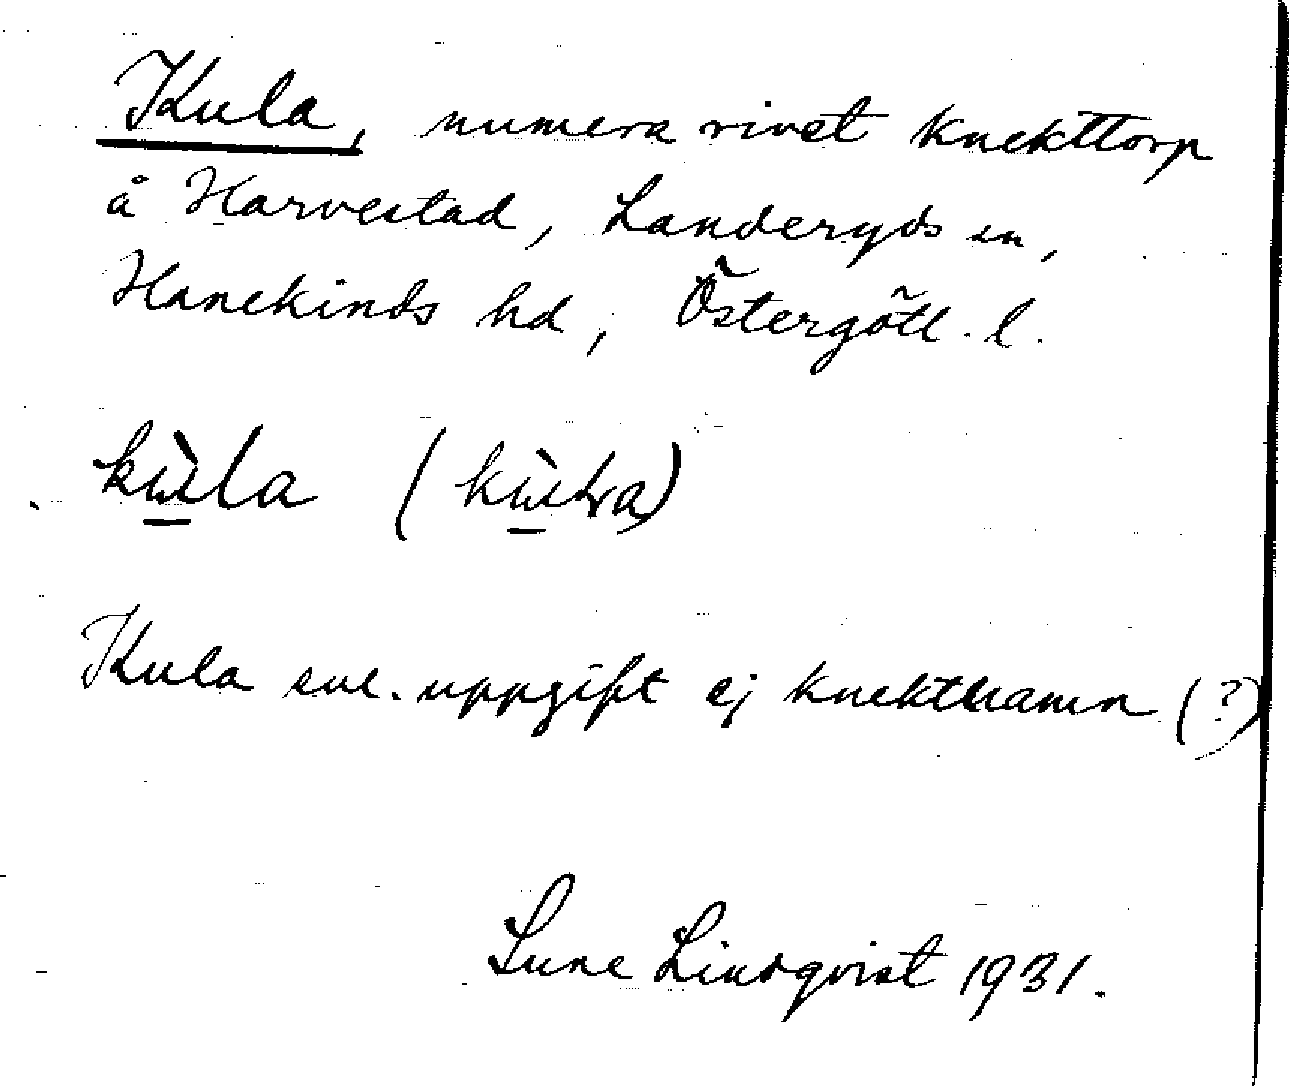 Kula, numera rivet knekttorp
å Harvestad, Landeryds sn,
Hanekinds hd, Östergötl. l.
kɯ̀la
Kula enl. uppgift ej knektnamn (?)
Sune Lindqvist 1931.